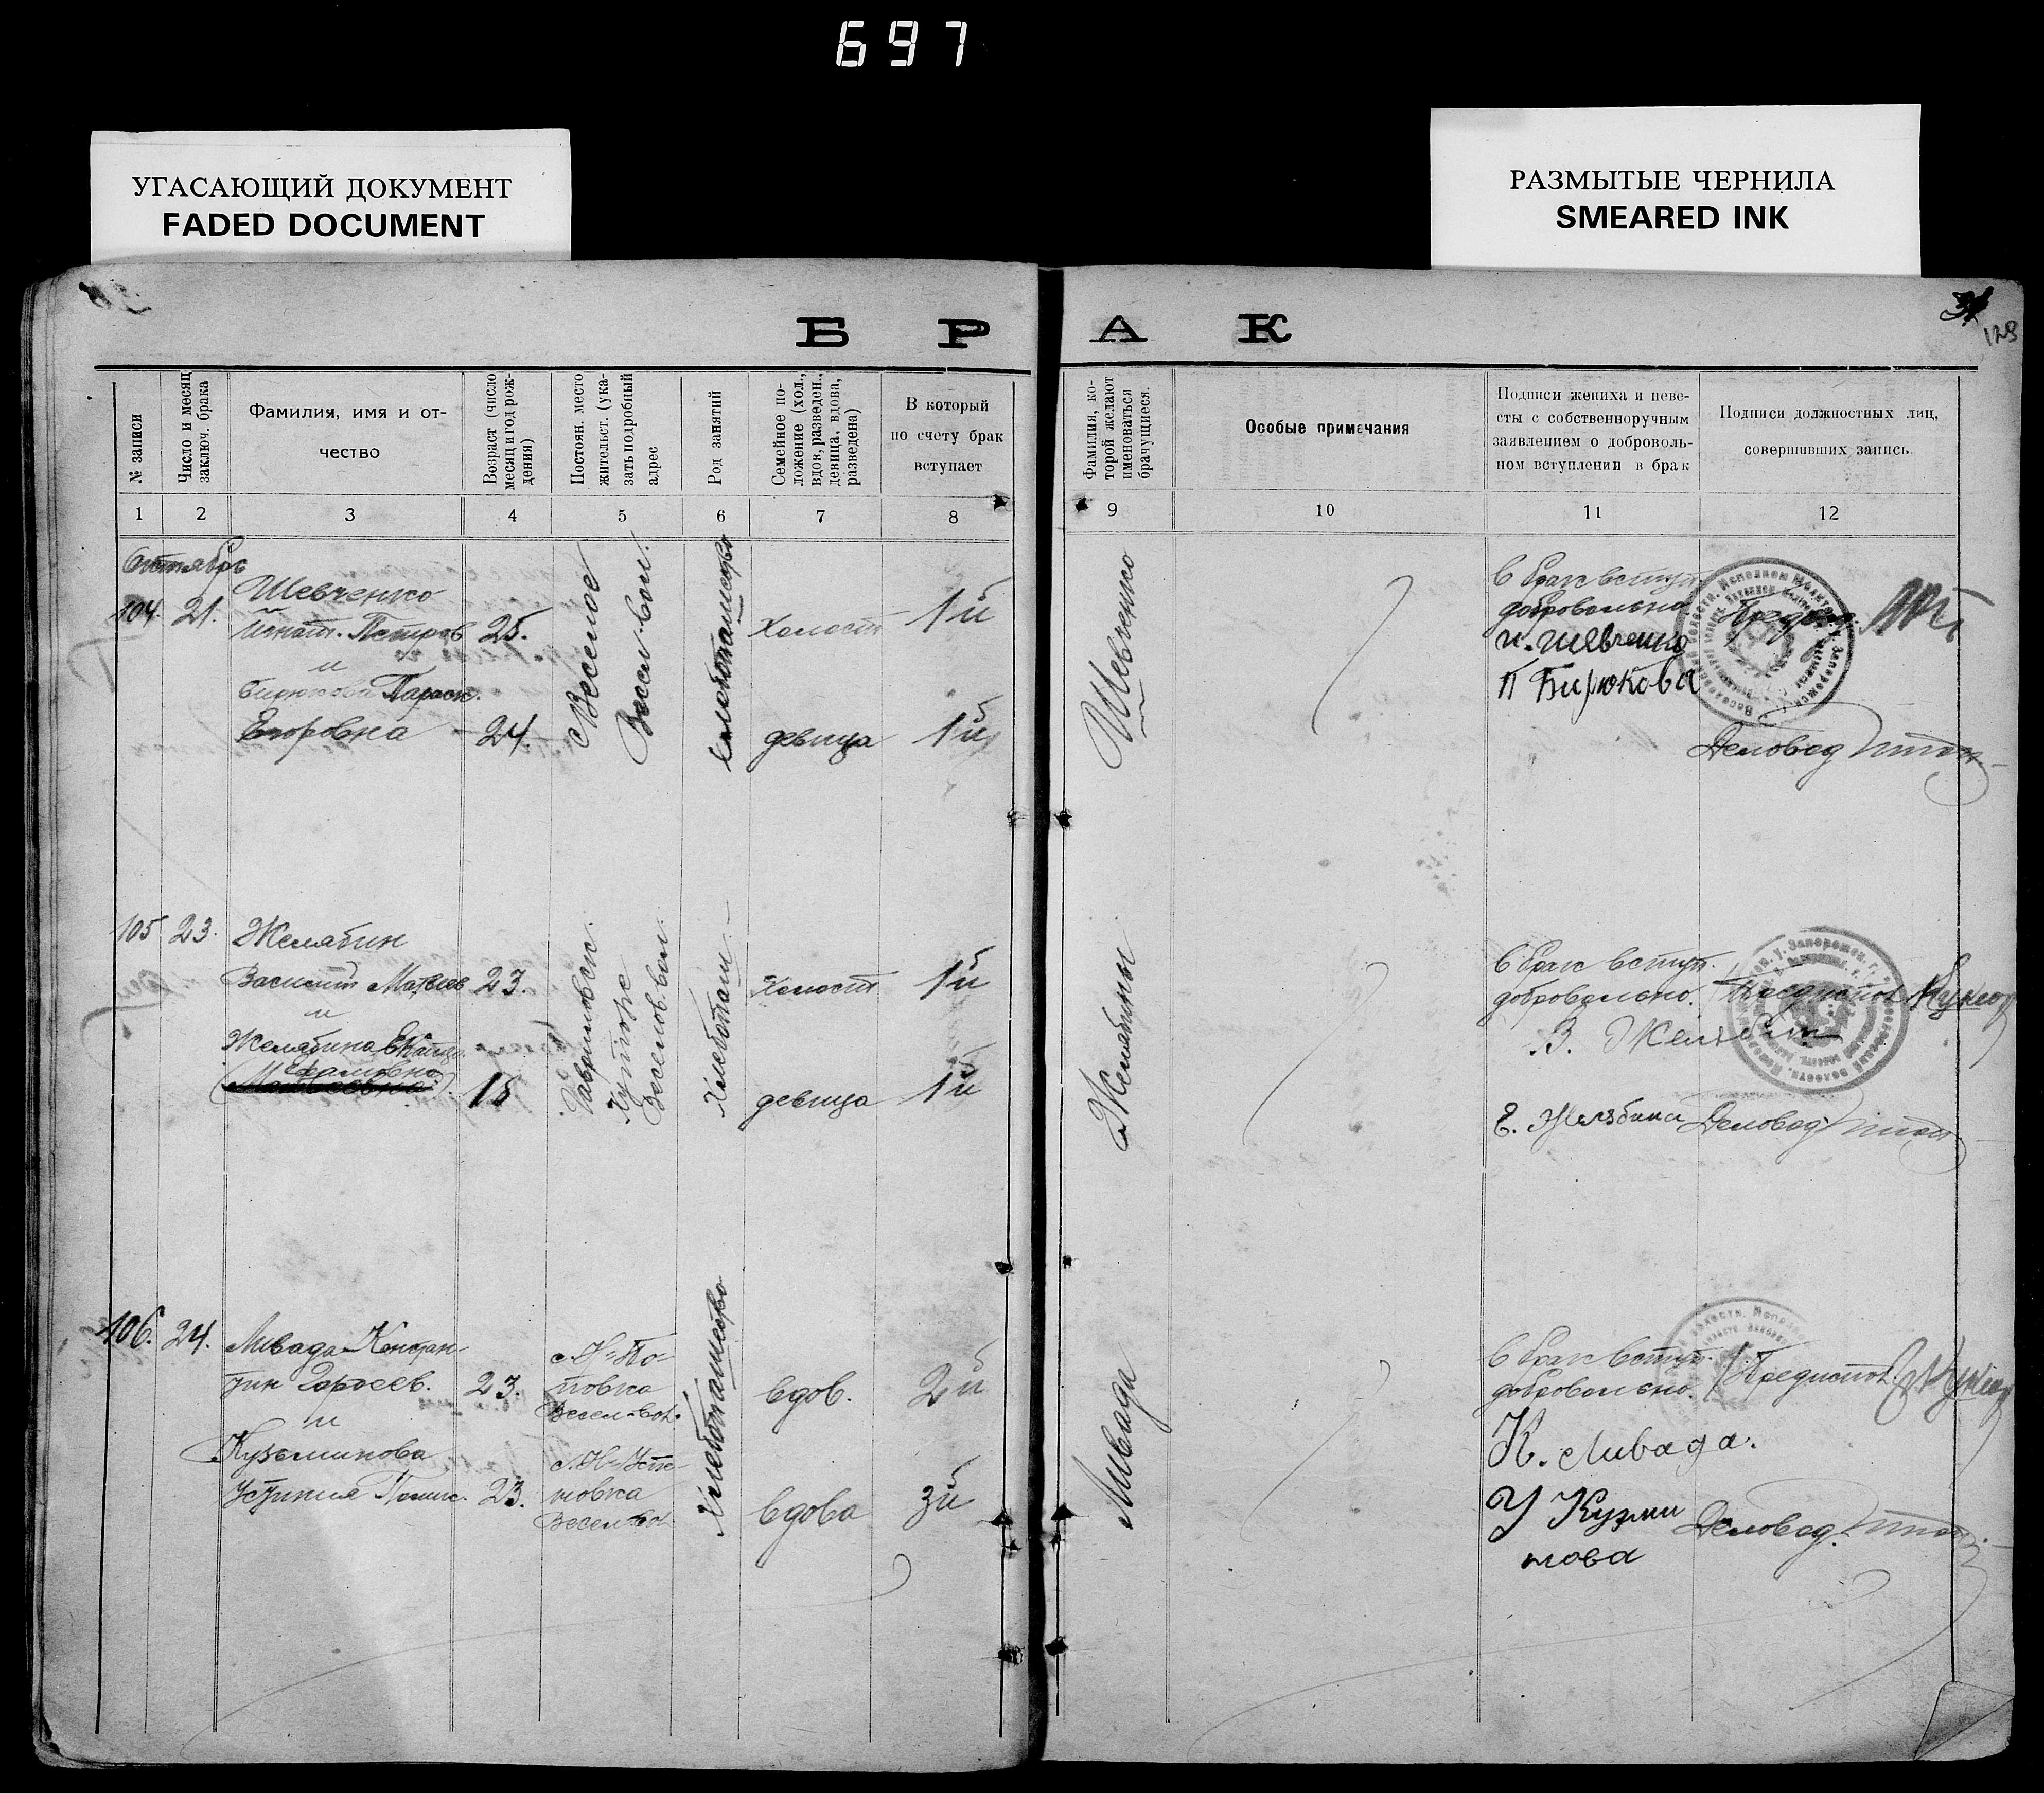 697
УГАСАЮЩИЙ ДОКУМЕНТ
FADED DOCUMENT
РАЗМЫТЫЕ ЧЕРНИЛА
SMEARED INK
БРАК
31
128
№ записи
Число и месяц
заключ. брака
Фамилия, имя и от-
чество
Возраст (число
месяц и год рож-
дения)
Постоян. место
жительст. (ука-
зать подробный
адрес
Род занятий
Семейное по-
ложение (хол.,
вдов, разведен.,
девица, вдова,
разведена)
В который
по счету брак
вступает
Фамилия, ко-
торой желают
именоваться
брачущиеся.
Особые примечания
Подписи жениха и неве-
сты с собственноручным
заявлением о доброволь-
ном вступлении в брак
Подписи должностных лиц,
совершивших запись.
1 2 3 4 5 6 7 8 9 10 11 12
Октябрь
104. 21.
Шевченко
Игнат. Петров 25.
и
Бирюкова Параск.
Егоровна 24.
с Веселое
Весел. вол.
Хлебопашество
Холост 1й
девица 1й
Шевченко
В брак вступ.
добровольно
И. Шевченко
П Бирюкова
Деловод
105 23.
Желябин
Василий Матвеев 23.
и
Желябина Екатер.
(Матвеевна) 18
Хуторе
Веселов. вол
Хлебопаш.
Холост 1й
девица 1й
Желябины
В брак вступ.
добровольно.
В. Желябин
Е. Желябина
Предиспол.
Деловод
106. 24.
Ливада Констан-
тин Гордеев. 23.
и
Кузьминова
Устиния 23.
с. Н-По-
повка
Весел-вол.
Весел-вол.
Хлебопашество
вдов. 2й
вдова 3й
Ливада
В брак вступ.
добровольно.
К. Ливада.
У Кузми
нова
Предиспол.
Деловод.